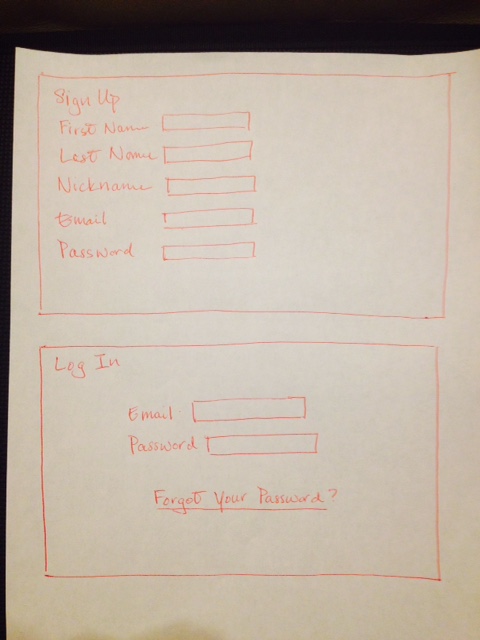 Sign Up
First Name
Last Name
Nickname
Email
Password
Log In
Email
Password
Forgot Your Password?